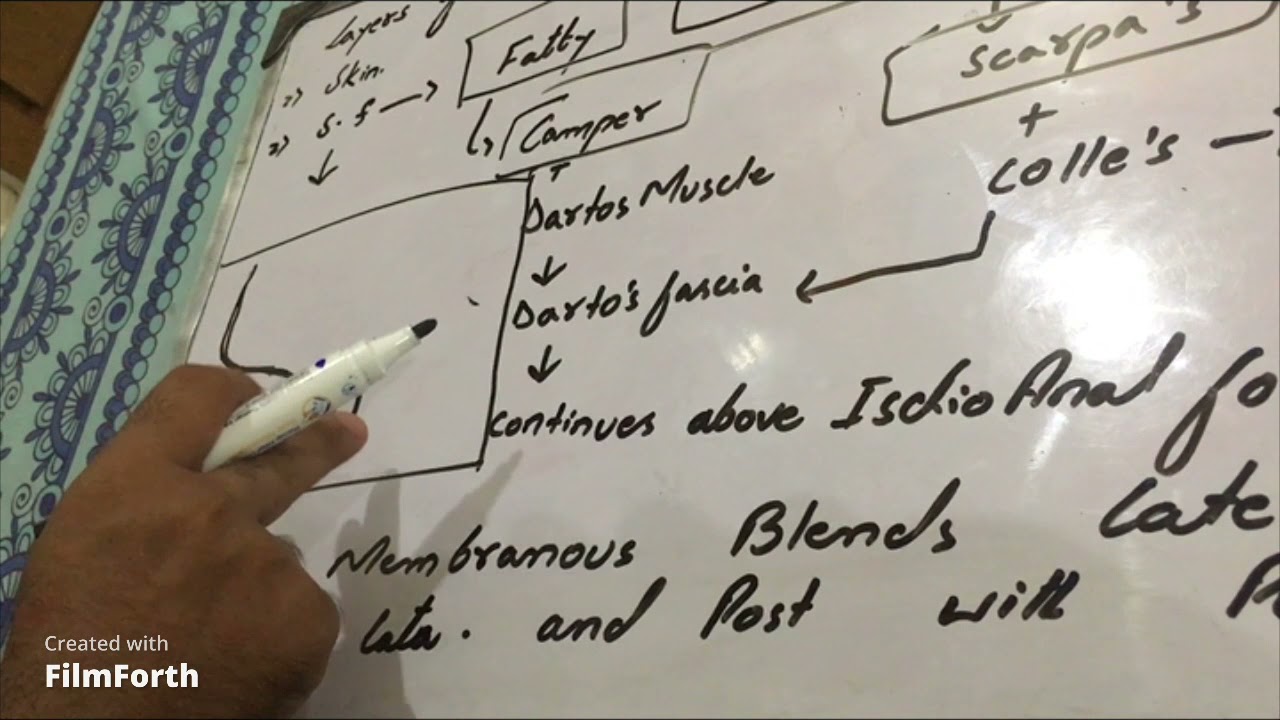 Layers
1) Skin.
2) S.f → Fatty
↓
↳ Camper
Scarpa's
+
+
Colle's –
Dartos Muscle
↓
Darto's fascia ←
↓
continues above Ischio Anal fo
Membranous Blends Late
lata. and Post with
Created with
FilmForth